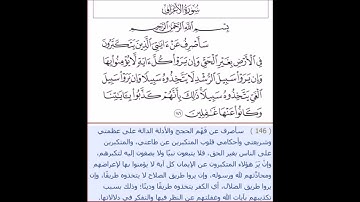 سورة الأعراف
بسم الله الرحمن الرحيم
سأصرف عن ءايتي الذين يتكبرون
في الأرض بغير الحق وإن يروا كل ءاية لا يؤمنوا بها
وإن يروا سبيل الرشد لا يتخذوه سبيلا وإن يروا سبيل
الغي يتخذوه سبيلا ذلك بأنهم كذبوا بـايتنا
وكانوا عنها غفلين ١٤٦
( 146 ) سأصرف عن فهم الحجج والأدلة الدالة على عظمتي
وشريعتي وأحكامي قلوب المتكبرين عن طاعتي، والمتكبرين
على الناس بغير الحق، فلا يتبعون نبيًا ولا يصغون إليه لتكبرهم،
وإن يَرَ هؤلاء المتكبرون عن الإيمان كل آية لا يؤمنوا بها لإعراضهم
ومحادَّتهم لله ورسوله، وإن يروا طريق الصلاح لا يتخذوه طريقًا، وإن
يروا طريق الضلال، أي الكفر يتخذوه طريقًا ودينًا؛ وذلك بسبب
تكذيبهم بآيات الله وغفلتهم عن النظر فيها والتفكر في دلالاتها.